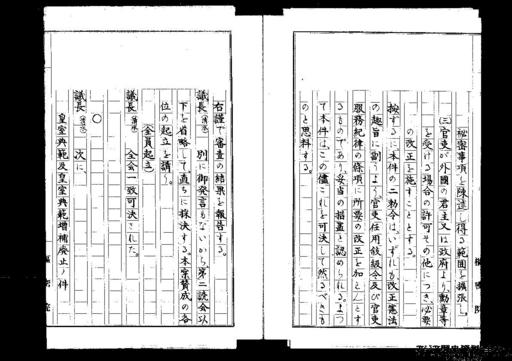 秘密事項を陳述し得る範囲を拡張し、
(三)官吏が外国の君主又は政府より、勲章等
を受ける場合の許可その他につき、必要
の改正を施すこととする。
按ずるに本件の二勅令は、いずれも改正憲法
の趣旨に副うよう、官吏任用叙級令及び官吏
服務紀律の條項に所要の改正を加えんとす
るものであり、妥当の措置と認められる。よつ
て本件は、この儘これを可決して然るべきも
のと思料する。
右謹で審査の結果を報告する。
議長 別に御発言もないから、第二読会以
下を省略して直ちに採決する。本案賛成の各
位の起立を請う。
(全員起立)
議長 全会一致可決された。
○
議長 次に
皇室典範及皇室典範増補廃止ノ件
枢密院
枢密院